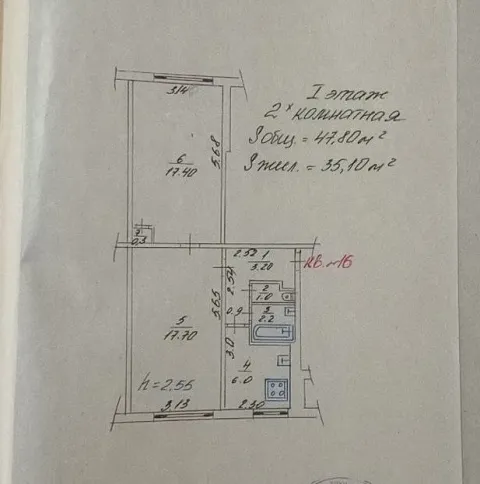 I этаж
2х комнатная
Sобщ. = 47,80 м²
Sжил. = 35,10 м²
кв. №16
3,14
5,68
6
17.40
7
0,3
2,52
1
3.20
2,54
2
1.0
0,9
3
2.2
5,65
5
17.70
3,0
4
6.0
h=2,55
3,13
2,30